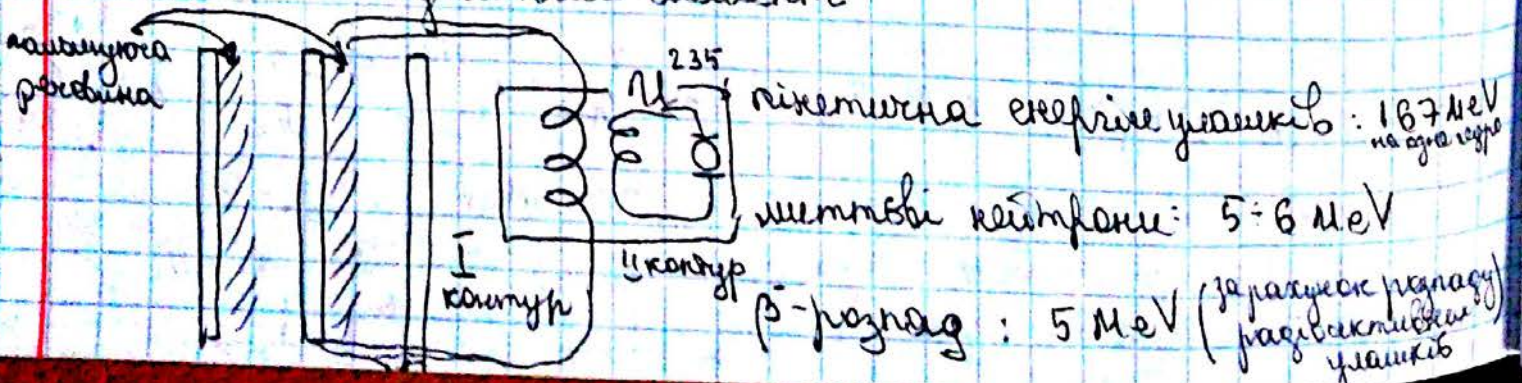 речовина
I
контур
II контур
U 235
кінетична енергія уламків : 167 MeV
на одне ядро
миттєві нейтрони : 5÷6 MeV
β⁻-розпад : 5 MeV (за рахунок розпаду
радіоактивних
уламків